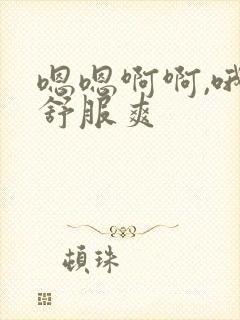 嗯嗯啊啊,哦
舒服爽
頓珠